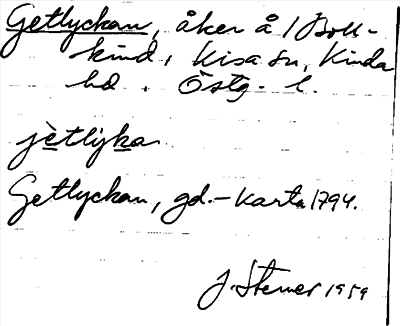 Getlyckan, åker å 1 Boll-
kind, Kisa sn, Kinda
hd. Östg. l.
jètlyka
Getlyckan, gd.-karta 1794.
J. Sterner 1959